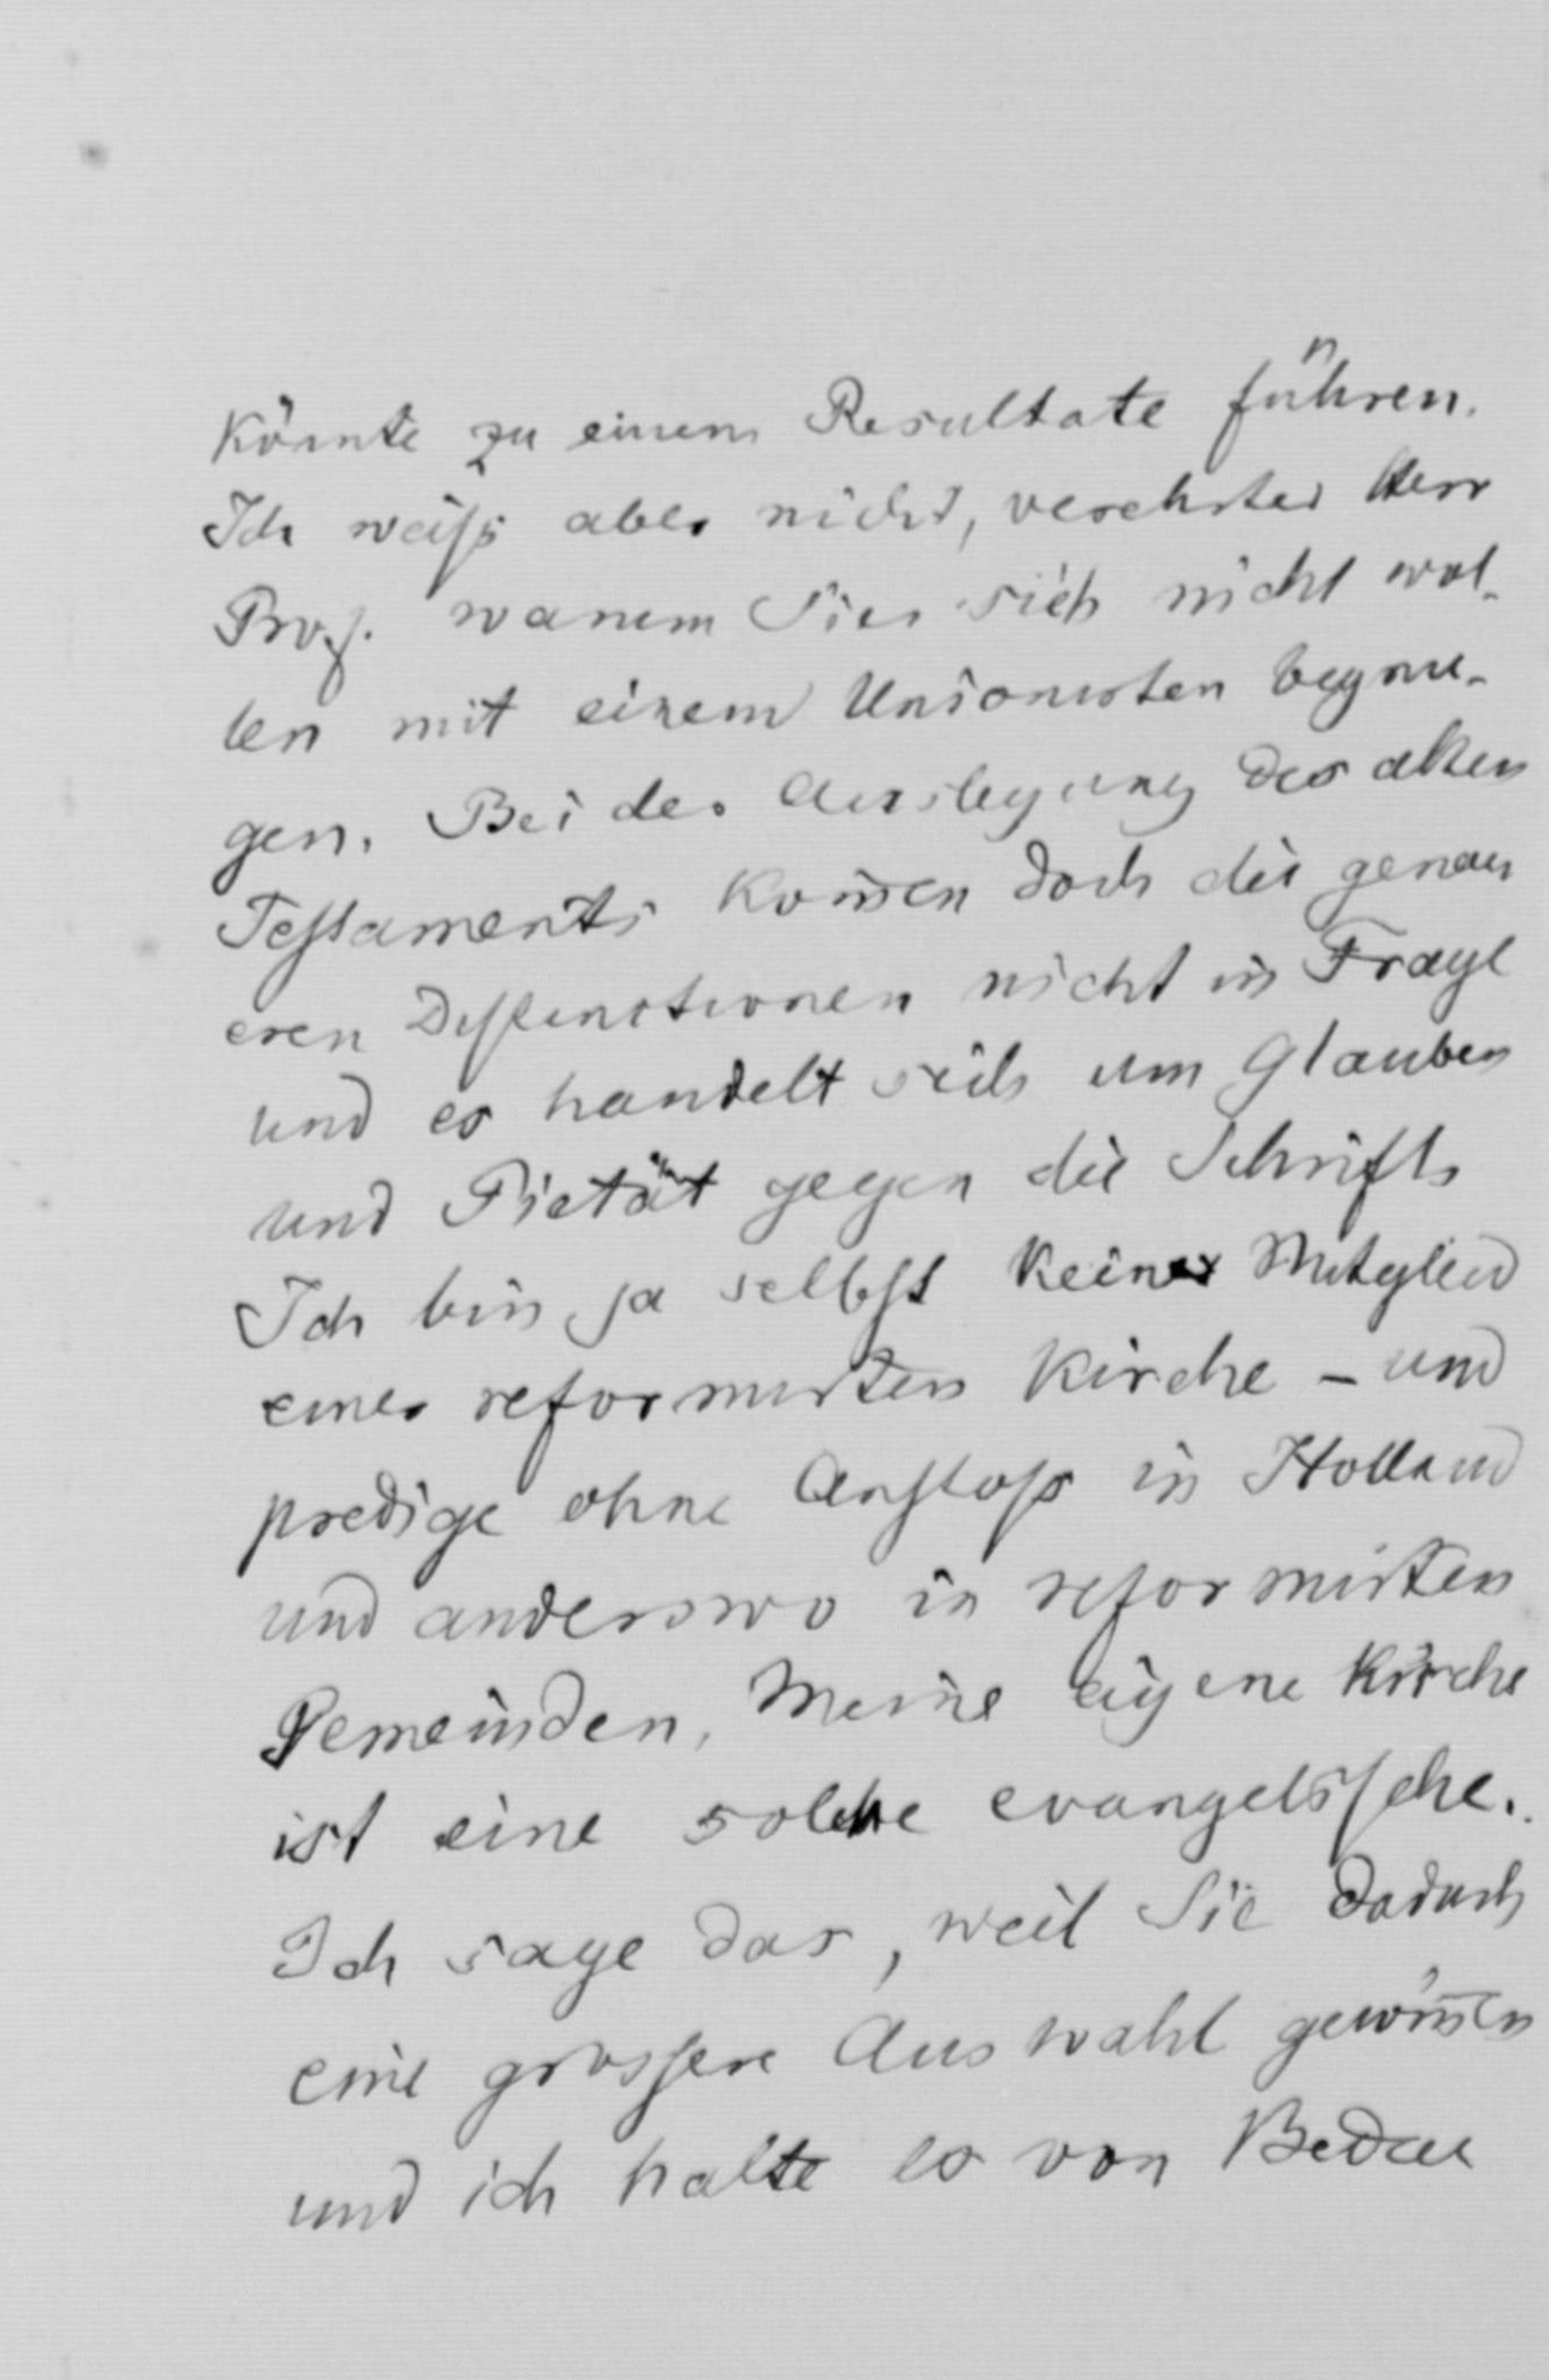 könnte zu einem Resultate führen.
Ich weiss aber nicht, verehrter Herr
Prof. warum Sie sich nicht wol-
len mit einem Unionisten begnü-
gen. Bei der Auslegung des alten
Testaments kom̅en doch die genau
eren Distinctionen nicht in Frage
und es handelt sich um Glauben
und Pietät gegen die Schrift.
Ich bin ja selbst keines Mitglied
einer reformirten Kirche – und
predige ohne Anstoss in Holland
und anderswo in reformirten
Gemeinden, Meine eigene Kirche
ist eine solche evangelische.
Ich sage das, weil Sie dadurch
eine grossere Auswahl gewin̅en
und ich halte es von Bedeu